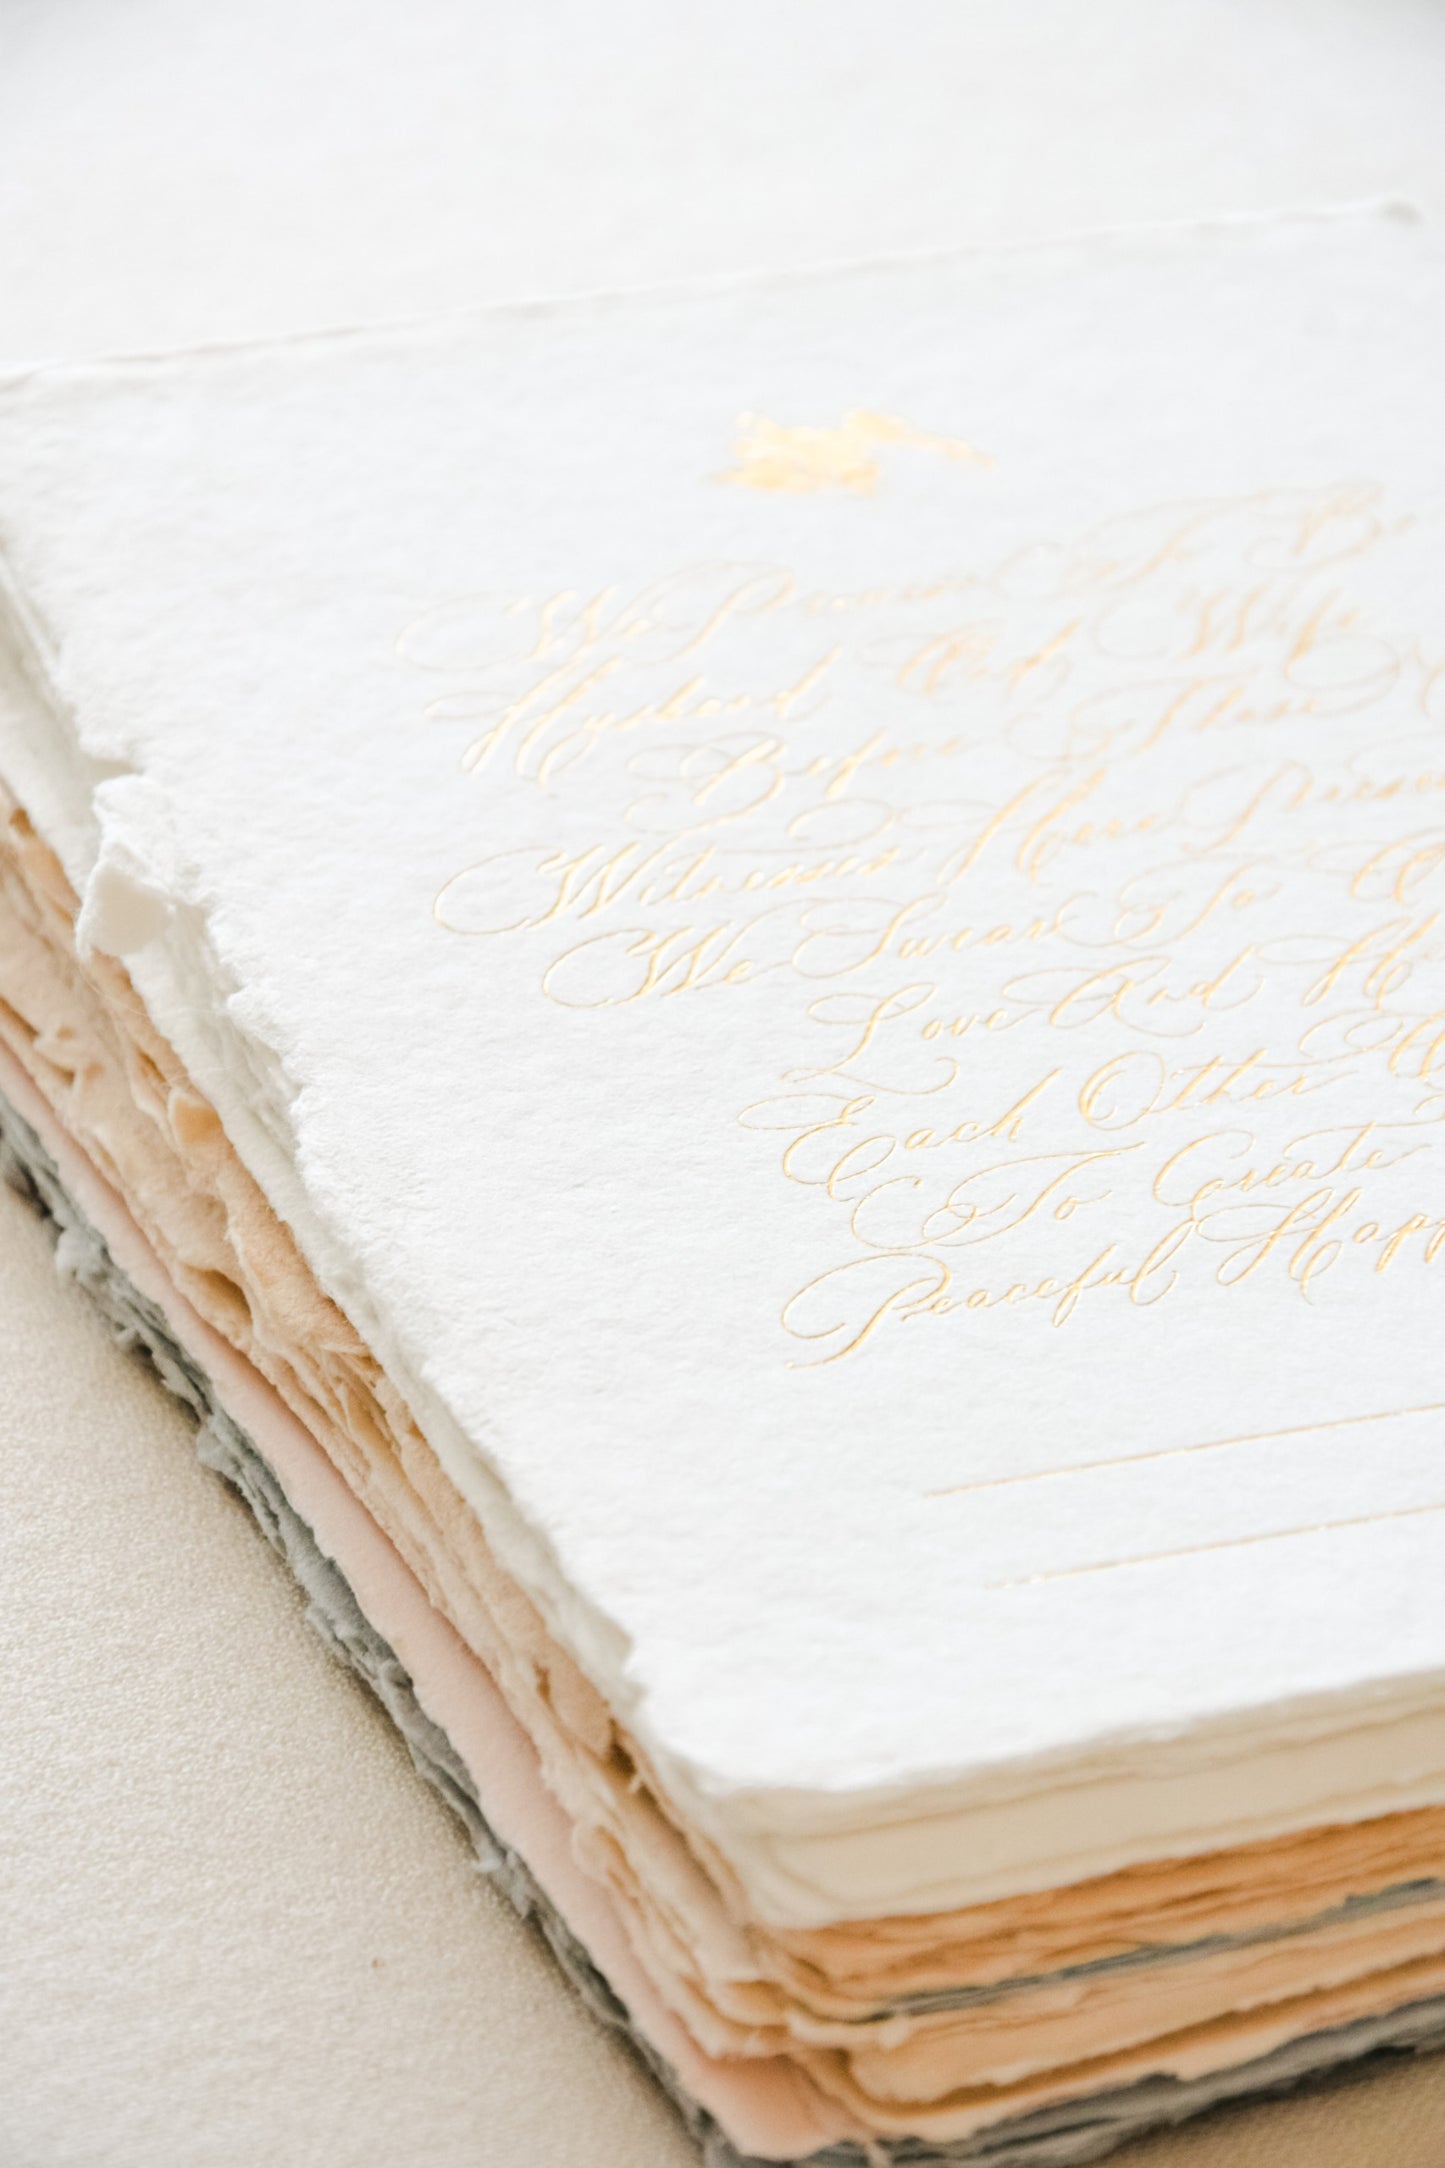 We Promise To Be
Husband And Wife
Before These
Witnesses Here Present
We Swear To
Love And
Each Other
To Create
Peaceful Happ